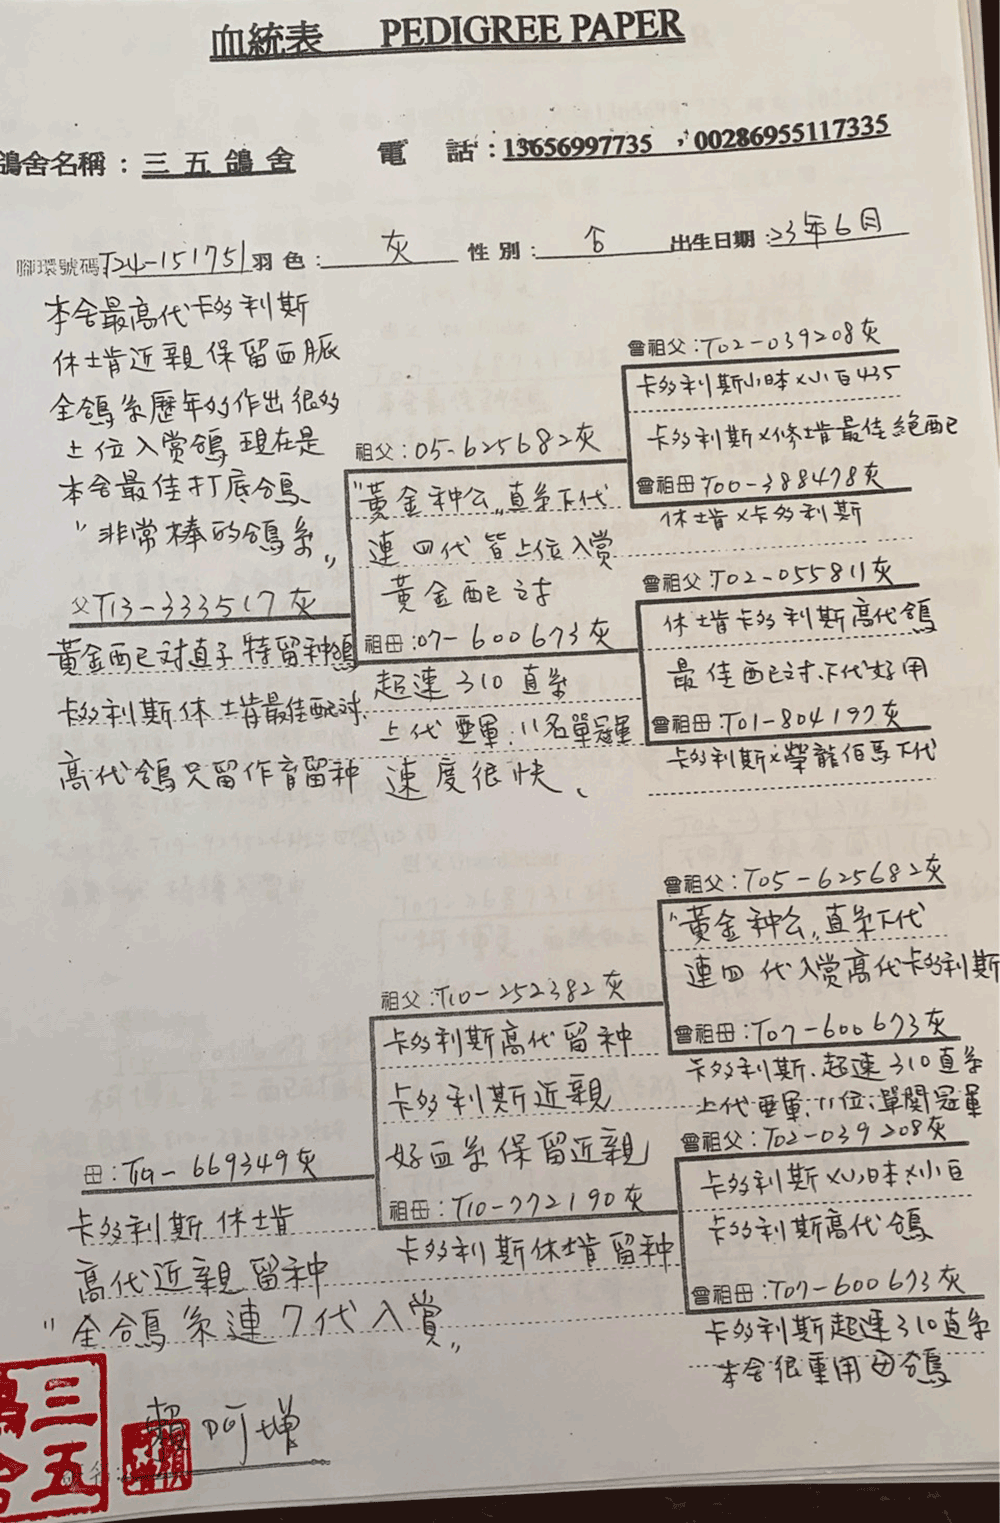 血統表 PEDIGREE PAPER
鴿舍名稱：三五鴿舍 電話：13656997735，00286955117335
腳環號碼：T24-151751 羽色：灰 性別： 出生日期：23年6月
本舍最高代卡多利斯
休士肯近親保留血脈
全鴿系歷年的作出很多
上位入賞鴿現在是
本舍最佳打底鴿
"非常棒的鴿系"
父T13-333517灰
黃金配対直子特留种鴿
卡多利斯休士肯最佳配对、
高代鴿只留作育留种
祖父：05-625682灰
"黃金种公"直系下代
連四代皆上位入賞
黃金配对
祖母：07-600673灰
超速310直系
上代亞軍、11名單冠軍
速度很快、
曾祖父：T02-039208灰
卡多利斯小日本×小白435
卡多利斯×修肯最佳絕配
曾祖母T00-388478灰
休士肯×卡多利斯
曾祖父：T02-055811灰
休士肯卡多利斯高代鴿
最佳配対、下代好用
曾祖母：T01-804197灰
卡多利斯×榮龍伯馬下代
母：T19-669349灰
卡多利斯休士肯
高代近親留种
"全鴿系連7代入賞"
祖父：T10-252382灰
卡多利斯高代留种
卡多利斯近親
好血系保留近親
祖母：T10-772190灰
卡多利斯休士肯留种
曾祖父：T05-625682灰
"黃金种公"直系下代
連四代入賞高代卡多利斯
曾祖母：T07-600673灰
卡多利斯、超速310直系
上代亞軍、11位、單關冠軍
曾祖父：T02-039208灰
卡多利斯×小日本×小白
卡多利斯高代鴿
曾祖母：T07-600673灰
卡多利斯超速310直系
本舍很重用母鴿
賴阿增
三五鴿舍